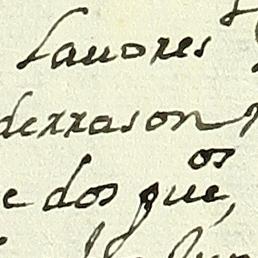 lauores
derrason
e dos que os